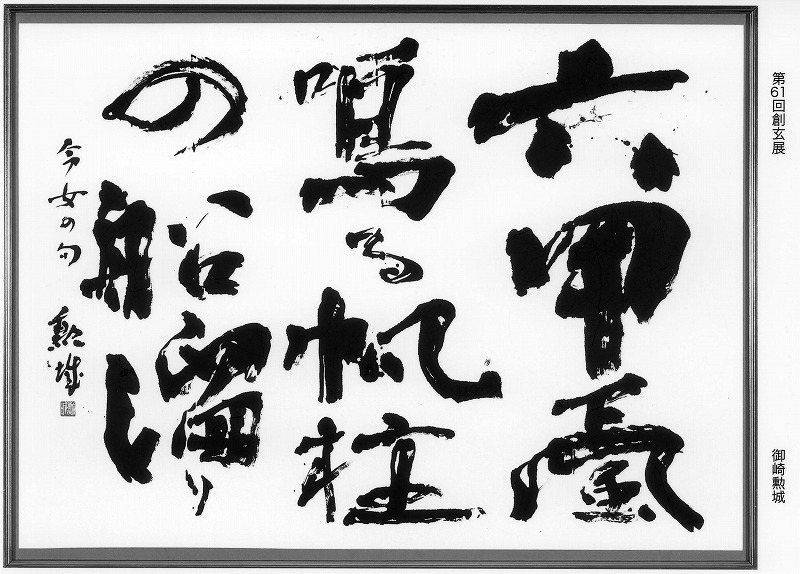 第61回創玄展
御崎勲城
六甲颪
鳴る帆柱
の船溜り
今女の句 勲城